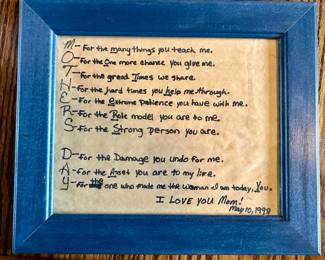 M - For the many things you teach me.
O - For the One more chance you give me.
T - For the great Times we share.
H - For the hard times you help me through.
E - For the extreme patience you have with me.
R - For the Role model you are to me.
S - For the Strong person you are.
D - For the Damage you undo for me.
A - For the Asset you are to my life.
Y - For the one who made me the woman I am today, You.
I LOVE YOU Mom!
May 10, 1998